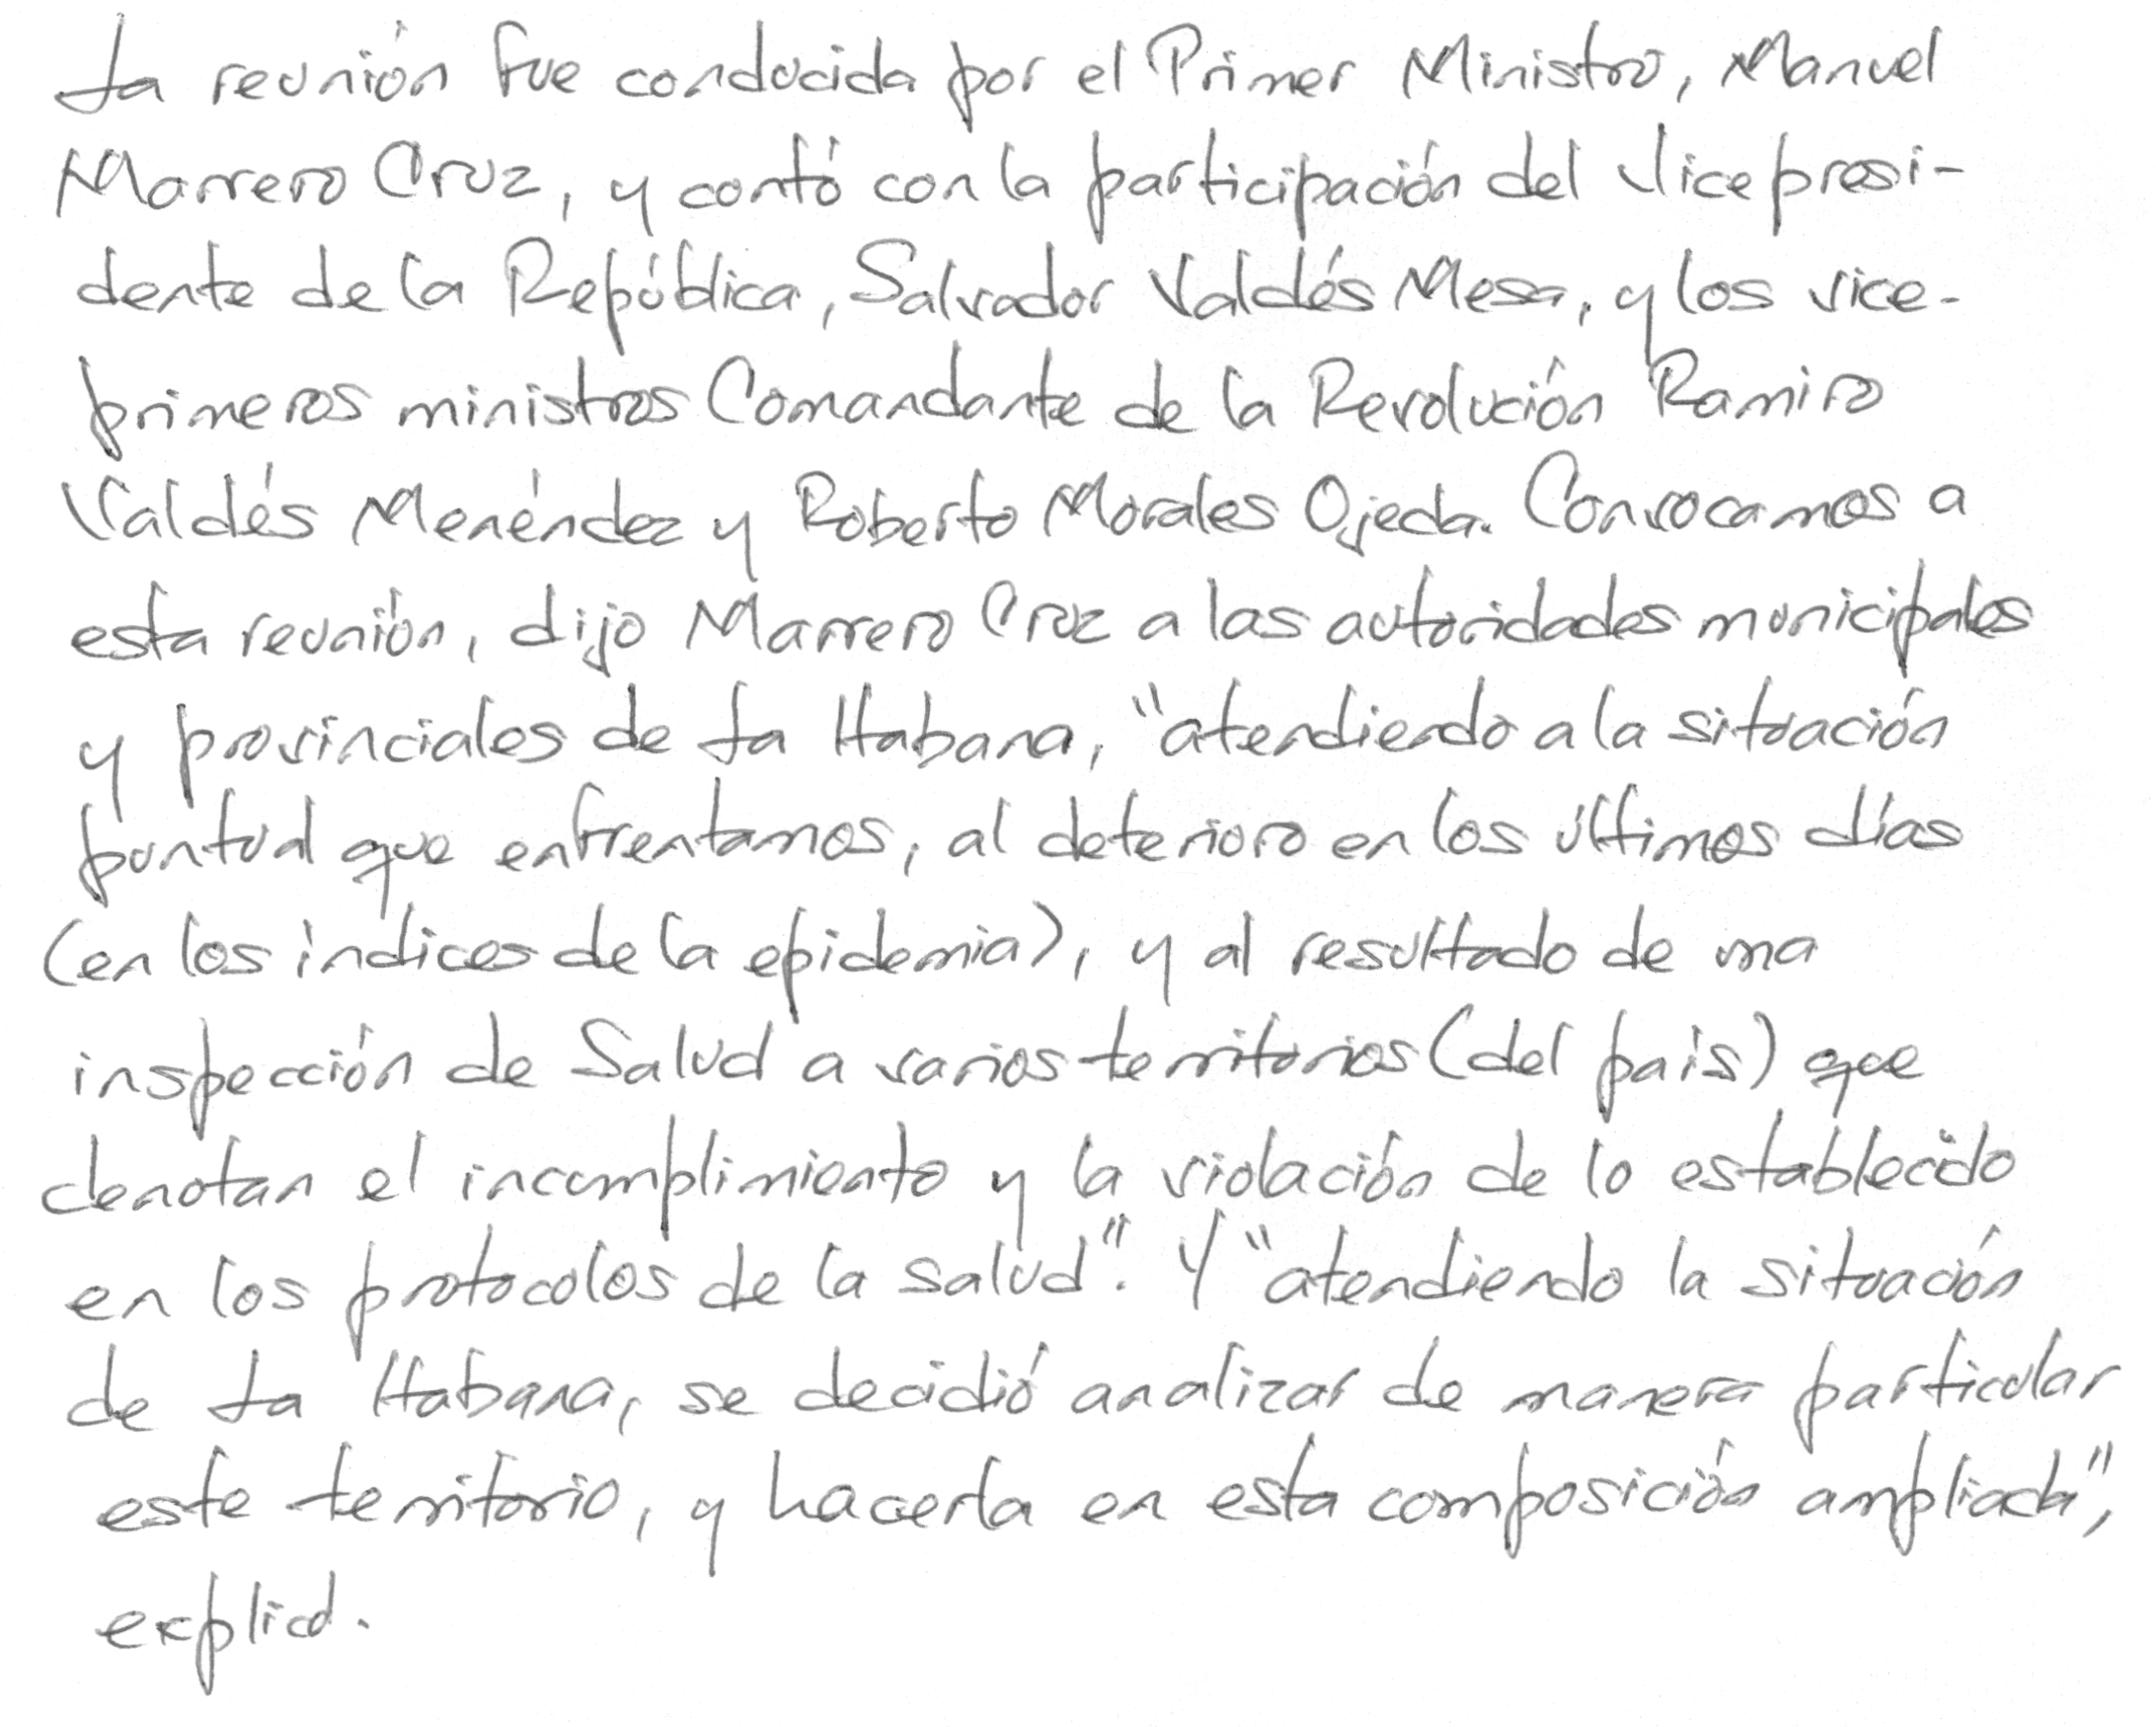 La reunión fue conducida por el Primer Ministro, Manuel
Marrero Cruz, y contó con la participación del Vicepresi-
dente de la República, Salvador Valdés Mesa, y los vice-
primeros ministros Comandante de la Revolución Ramiro
Valdés Menéndez y Roberto Morales Ojeda. Convocamos a
esta reunión, dijo Marrero Cruz a las autoridades municipales
y provinciales de La Habana, "atendiendo a la situación
puntual que enfrentamos, al deterioro en los últimos días
(en los índices de la epidemia), y al resultado de una
inspección de Salud a varios territorios (del país) que
denotan el incumplimiento y la violación de lo establecido
en los protocolos de la salud". Y "atendiendo la situación
de La Habana, se decidió analizar de manera particular
este territorio, y hacerla en esta composición ampliada",
explicó.